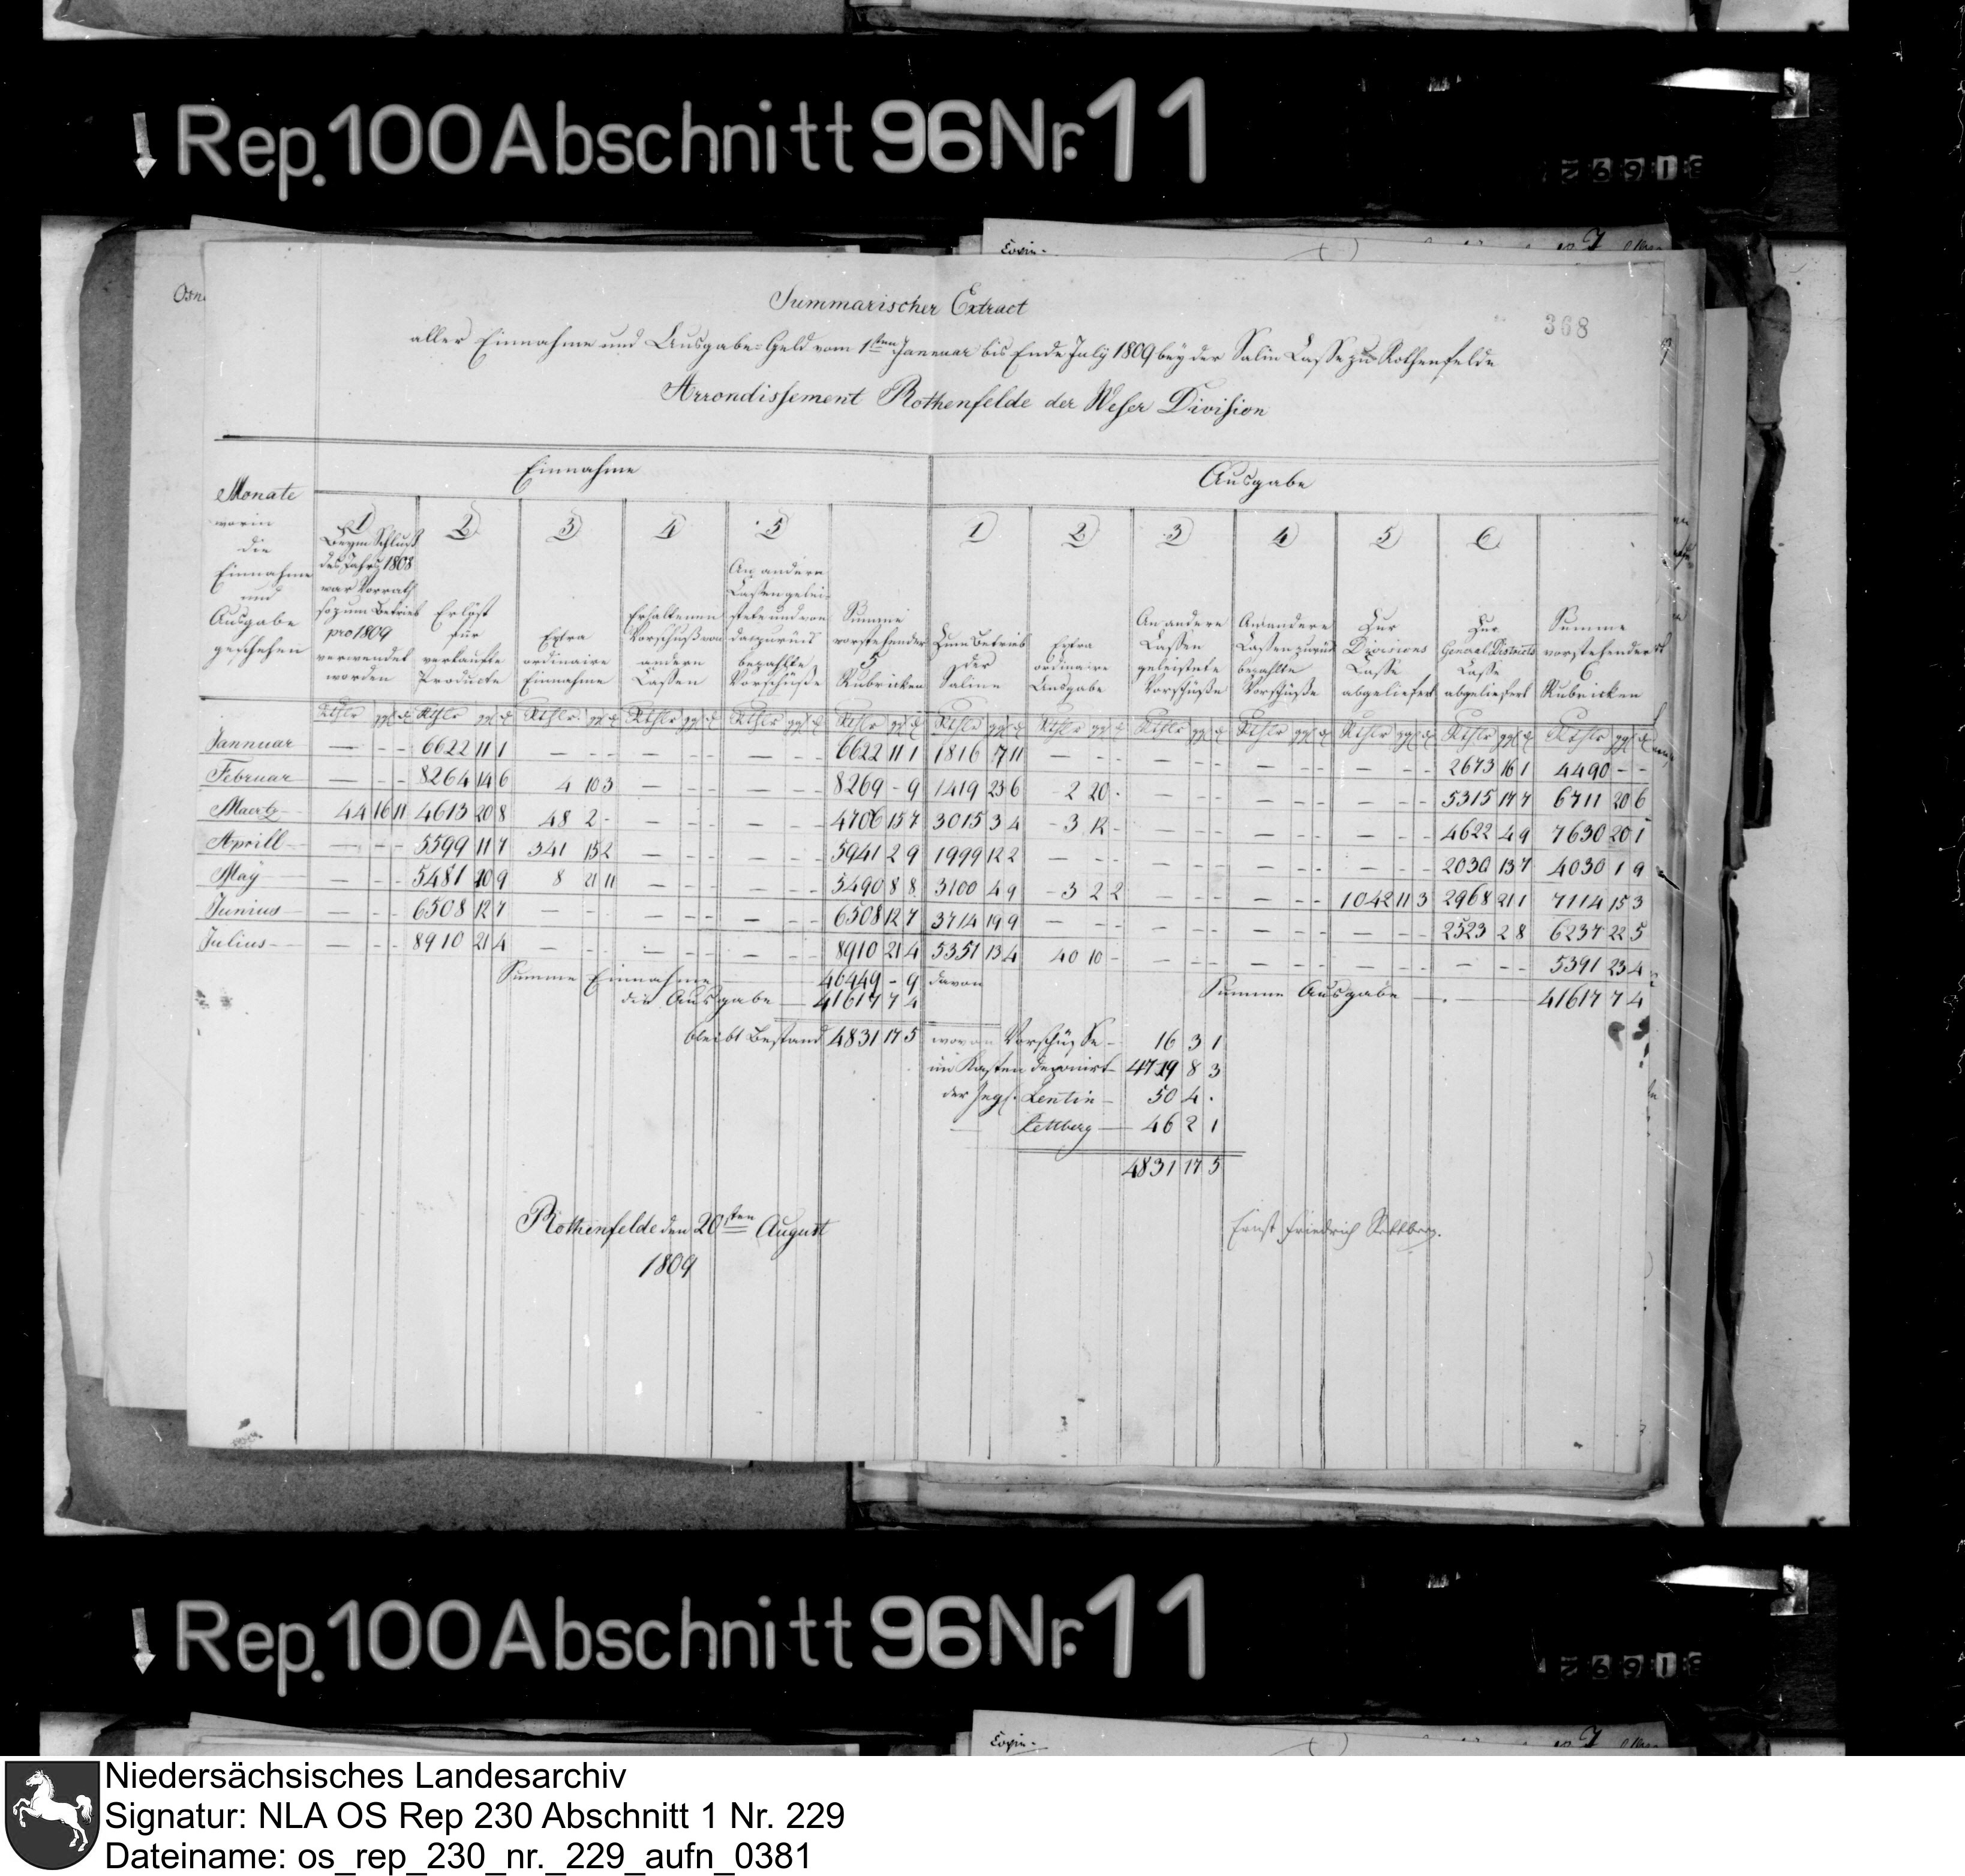 Rep. 100 Abschnitt 96 Nr. 11
Copia.
Osn.
368
Summarischer Extract
aller Einnahme und Ausgabe-Geld vom 1sten Jannuar bis Ende July 1809 bey der Salin Casse zu Rothenfelde
Arrondissement Rothenfelde der Weser Division
Monate worin die Einnahme und Ausgabe geschehen
Einnahme
1 Beym Schluß des Jahrs 1808 war Vorrath so zum Betrieb pro 1809 verwendet worden
2 Erlöst für verkaufte Producte
3 Extra ordinaire Einnahme
4 Erhaltenen Vorschuß von andern Cassen
5 An andere Cassen geleistete und von da zurück bezahlte Vorschüße
Summe vorstehender 5 Rubricken
Ausgabe
1 Zum Betrieb der Saline
2 Extra ordinaire Ausgabe
3 An andere Cassen geleistete Vorschüße
4 An andere Cassen zurück bezahlte Vorschüße
5 Zur Divisions Casse abgeliefert
6 Zur General Districts Casse abgeliefert
Summe vorstehender 6 Rubricken
Rthlr ggl d Rthlr ggl d Rthlr ggl d Rthlr ggl d Rthlr ggl d Rthlr ggl d Rthlr ggl d Rthlr ggl d Rthlr ggl d Rthlr ggl d Rthlr ggl d Rthlr ggl d Rthlr ggl d
Jannuar — - - 6622 11 1 — - - — - - — - - 6622 11 1 1816 7 11 — - - — - - — - - — - - 2673 16 1 4490 - -
Februar — - - 8264 14 6 4 10 3 — - - — - - 8269 - 9 1419 23 6 2 20 - — - - — - - — - - 5315 17 7 6711 20 6
Maertz 44 16 11 4613 20 8 48 2 - — - - — - - 4706 15 7 3015 3 4 3 12 - — - - — - - — - - 4622 4 9 7630 20 1
Aprill — - - 5599 11 7 341 15 2 — - - — - - 5941 2 9 1999 12 2 — - - — - - — - - — - - 2030 13 7 4030 1 9
May — - - 5481 10 9 8 21 11 — - - — - - 5490 8 8 3100 4 9 3 2 2 — - - — - - 1042 11 3 2968 21 1 7114 15 3
Junius — - - 6508 12 7 — - - — - - — - - 6508 12 7 3714 19 9 — - - — - - — - - — - - 2523 2 8 6237 22 5
Julius — - - 8910 21 4 — - - — - - — - - 8910 21 4 5351 13 4 40 10 - — - - — - - — - - — - - 5391 23 4
Summe Einnahme 46449 - 9 davon
die Ausgabe — 41617 7 4
Summe Ausgabe — 41617 7 4
bleibt Bestand 4831 17 5 wovon Vorschüße — 16 3 1
im Kasten deponirt 4719 8 3
der Insp. Lentin — 50 4 .
— Rettberg — 46 2 1
4831 17 5
Rothenfelde den 20sten August
1809
Ernst Friedrich Rettberg.
Rep. 100 Abschnitt 96 Nr. 11
Copia.
Niedersächsisches Landesarchiv
Signatur: NLA OS Rep 230 Abschnitt 1 Nr. 229
Dateiname: os_rep_230_nr._229_aufn_0381